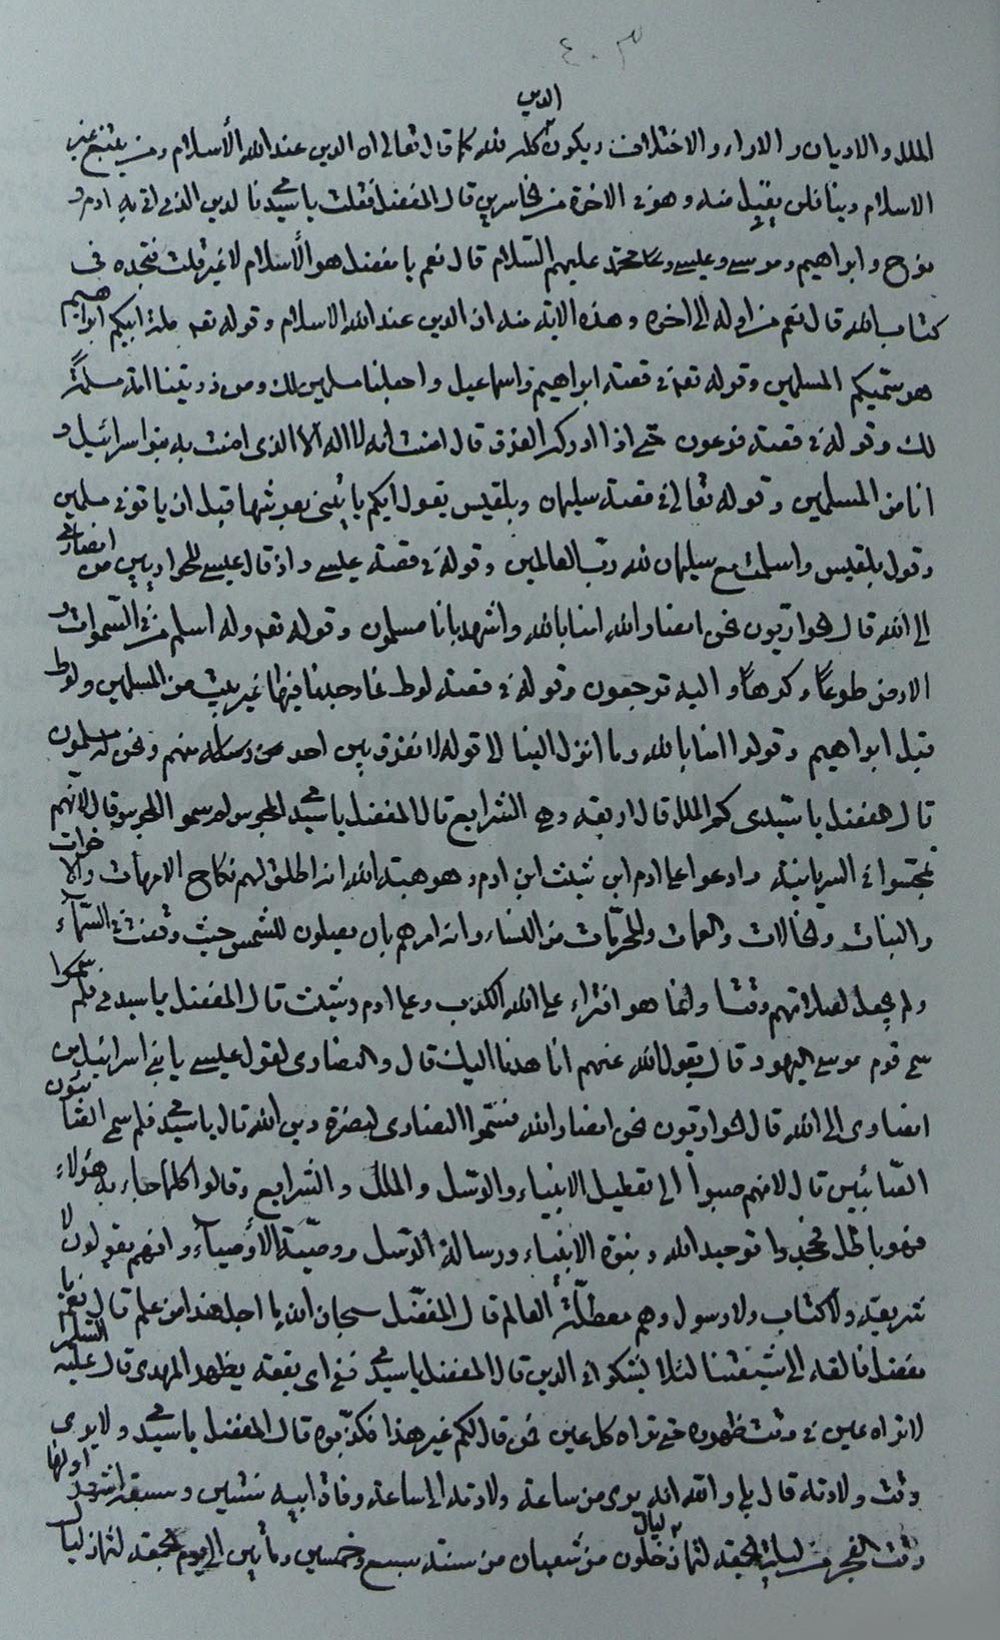 ٤٠٣
الدين
الملل والاديان والاراء والاختلاف ويكون كله لله كما قال تعالى ان الدين عند الله الأسلام ومن يبتغ غير
الاسلام دينا فلن يقبل منه وهو فى الاخرة من الخاسرين قال المفضل فقلت يا سيدى فالدين الذى اتى به ادم و
نوح وابراهيم وموسى وعيسى ومحمد عليهم السلام قال نعم يا مفضل هو الأسلام لا غير قلت فنجده فى
كتاب الله قال نعم من اوله الى اخره وهذه الاية منه ان الدين عند الله الاسلام وقوله تعه ملة ابيكم ابراهيم
هو سميكم المسلمين وقوله تعه فى قصة ابراهيم واسماعيل واجعلنا مسلمين لك ومن ذريتنا امة مسلمة
لك وقوله فى قصة فرعون حتى اذا ادركه الغرق قال امنت انه لا اله الا الذى امنت به بنو اسرائيل و
انا من المسلمين وقوله تعالى فى قصة سليمان وبلقيس يقول ايكم ياتينى بعرشها قبل ان ياتونى مسلمين
وقول بلقيس واسلمت مع سليمان لله رب العالمين وقوله فى قصة عيسى واذ قال عيسى للحواريين من انصارى
الى الله قال الحواريون نحن انصار الله امنا بالله واشهد بانا مسلمون وقوله تعه وله اسلم من فى السموات و
الارض طوعاً وكرهاً واليه ترجعون وقوله فى قصة لوط فما وجدنا فيها غير بيت من المسلمين ولوط
قبل ابراهيم وقولوا امنا بالله وما انزل الينا الى قوله لا نفرق بين احد منهم ونحن له مسلمون
قال المفضل يا سيدى كم الملل قال اربعة وهى الشرايع قال المفضل يا سيدى المجوس لم سموا المجوس قال لانهم
تمجسوا فى السريانية وادعوا على ادم ابن شيث ابن ادم وهو هبة الله انه اطلق لهم نكاح الامهات والاخوات
والبنات والخالات والعمات والمحرمات من النساء وانه امرهم بان يصلون للشمس حيث وقفت فى السمآء
ولم يجعل لصلاتهم وقتا وانما هو افتراء على الله الكذب وعلى ادم وشيث قال المفضل يا سيدى فلم سموا
سمى قوم موسى اليهود قال يقول الله عنهم انا هدنا اليك قال والنصارى لقول عيسى يا بنى اسرائيل من
انصارى الى الله قال الحواريون نحن انصار الله فسموا النصارى لنصرة دين الله قال يا سيدى فلم سمى الصابئون
الصابئين قال لانهم صبوا الى تعطيل الانبياء والرسل والملل والشرايع وقالوا كلما جاء به هؤلاء
فهو باطل فجحدوا توحيد الله ونبوة الانبياء ورسالة الرسل ووصية الأوصيآء وانهم يقولون لا
شريعة ولا كتاب ولا رسول وهم معطلة العالم قال المفضل سبحان الله ما اجل هذا من علم قال نعم يا
مفضل فالقه الى شيعتنا لئلا يشكوا فى الدين قال المفضل يا سيدى ففى اى بقعة يظهر المهدى قال عليه السلام
لا تراه عين فى وقت ظهوره حتى تراه كل عين فمن قال لكم غير هذا فكذبوه قال المفضل يا سيدى ولا يرى
وقت ولادته قال بلى والله انه يرى من ساعة ولادته الى ساعة وفاة ابيه سنتين وسبعة اشهر اولها
وقت الفجر من ليلة الجمعة لثمان ليال خلون من شعبان من سنة سبع وخمسين ومأتين الى يوم الجمعة لثمان ليال